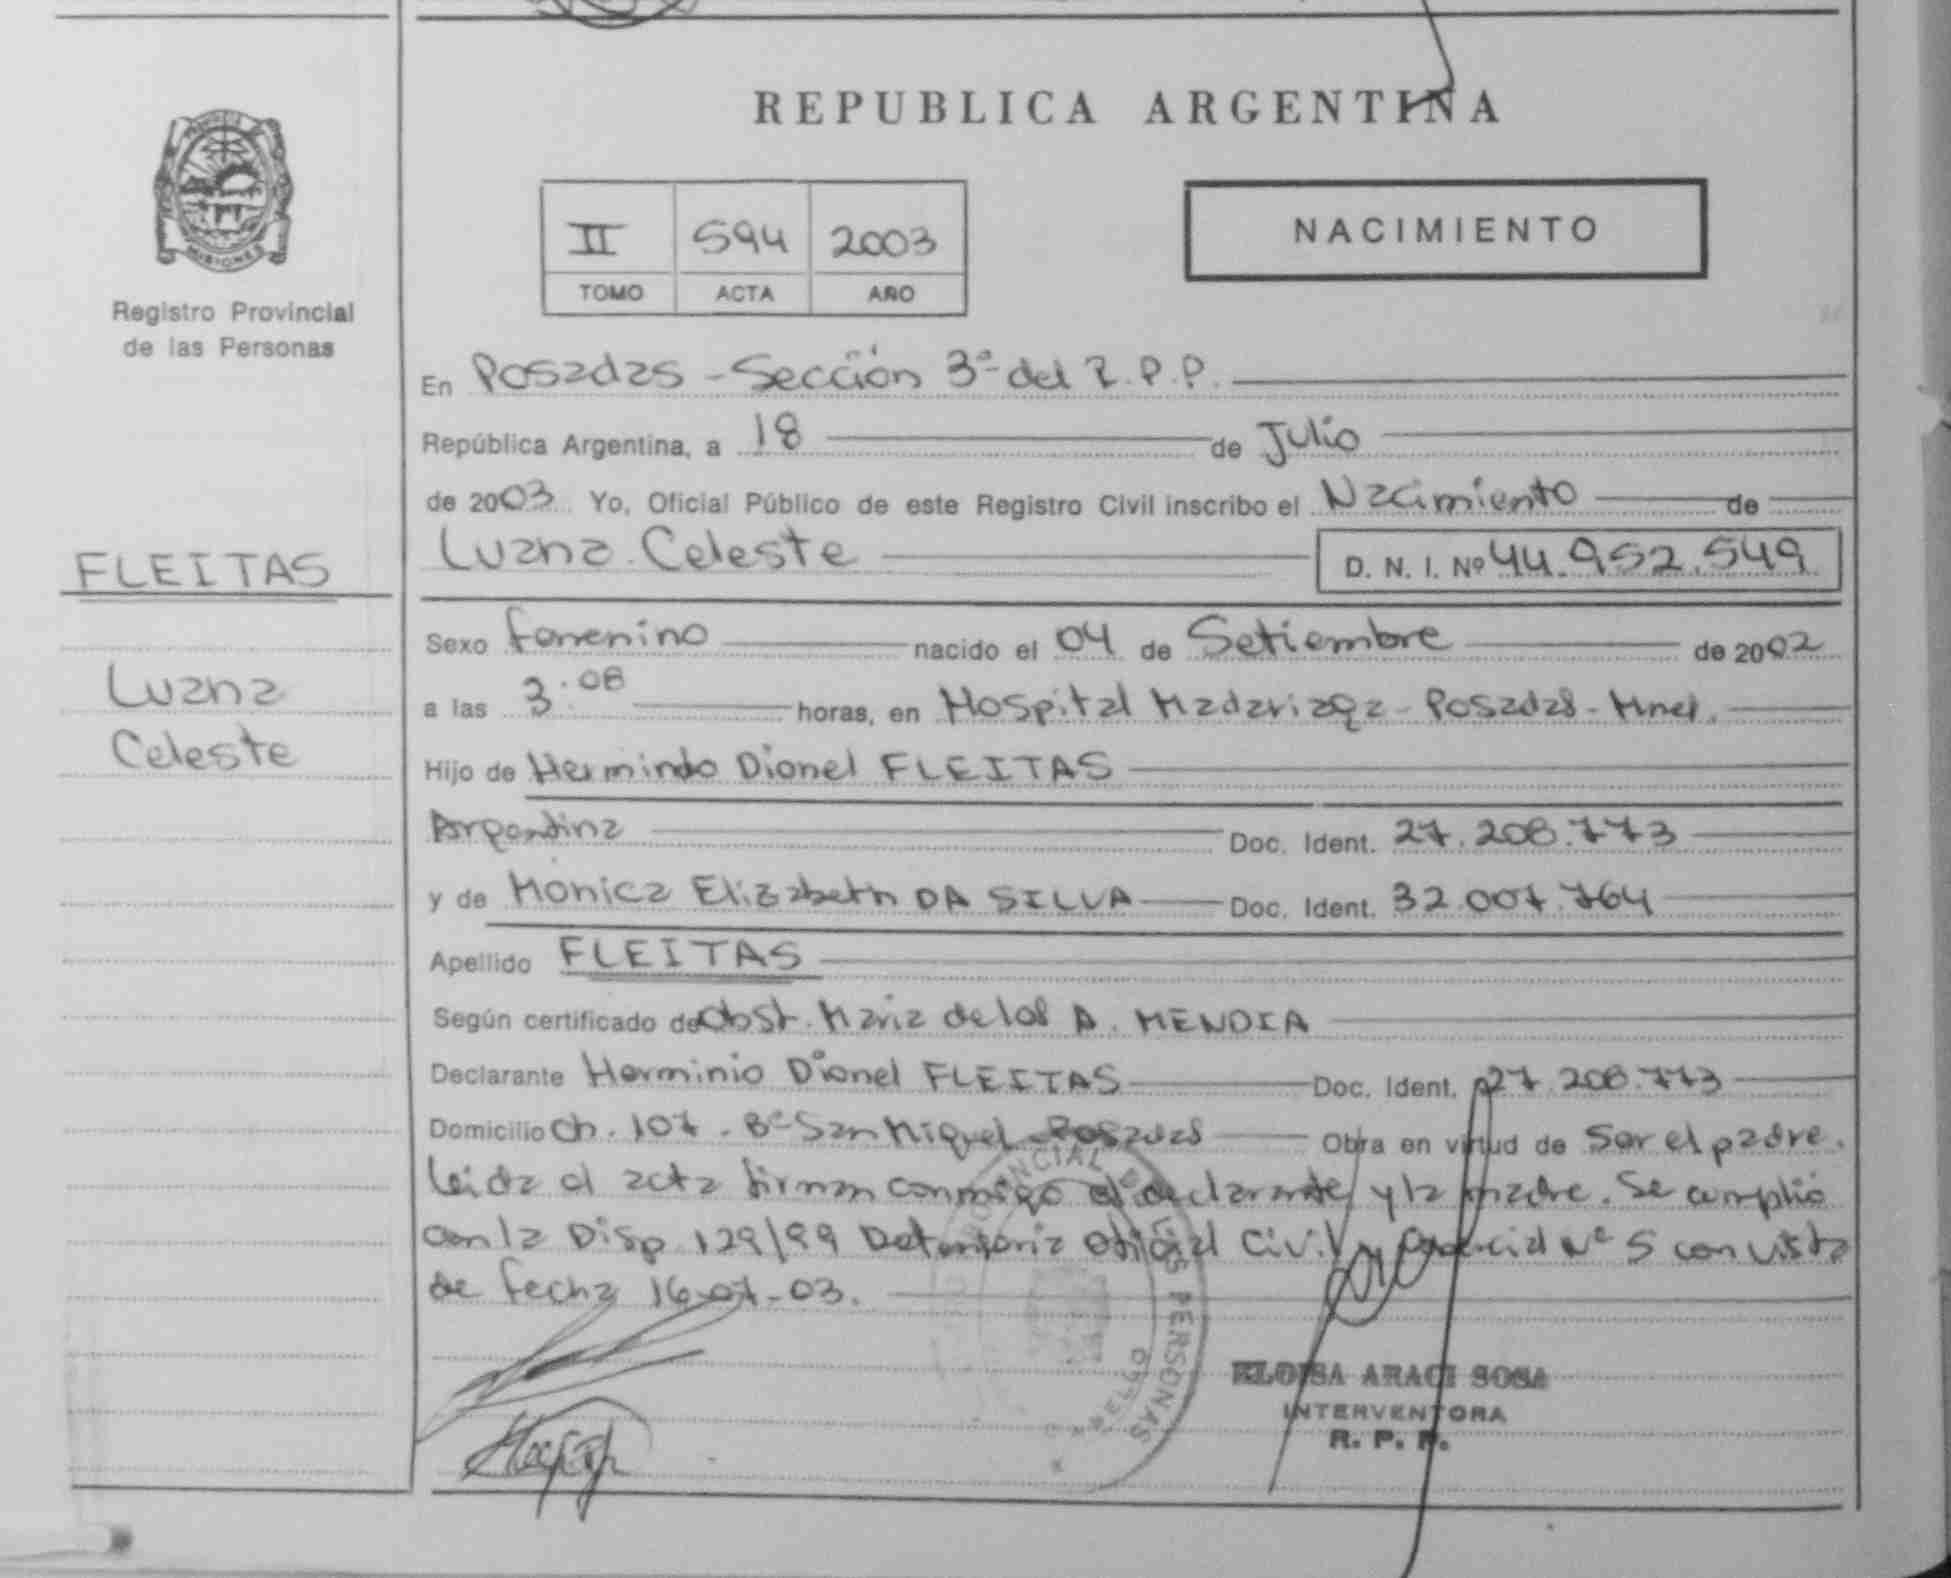 REPUBLICA ARGENTINA
PROVINCIA DE
MISIONES
Registro Provincial
de las Personas
II 594 2003
TOMO ACTA AÑO
NACIMIENTO
En Posadas - Sección 3ª del R.P.P.
República Argentina, a 18 de Julio
de 2003 Yo, Oficial Público de este Registro Civil inscribo el Nacimiento de
FLEITAS
Luana Celeste D. N. I. Nº 44.952.549
Sexo femenino nacido el 04 de Setiembre de 2002
Luana
a las 3:08 horas, en Hospital Madariaga - Posadas - Mnes.
Celeste
Hijo de Hermindo Dionel FLEITAS
Argentina Doc. Ident. 27.208.773
y de Monica Elizabeth DA SILVA Doc. Ident. 32.007.764
Apellido FLEITAS
Según certificado de Obst. Maria de los A. MENDIA
Declarante Herminio Dionel FLEITAS Doc. Ident. 27.208.773
Domicilio Ch. 107 - Bº San Miguel - Posadas Obra en virtud de Ser el padre.
Leida el acta firman conmigo el declarante y la madre. Se cumplió
con la Disp 129/99 Defensoria Oficial Civil y Nº 5 con vista
de fecha 16-07-03.
PROVINCIAL DE LAS PERSONAS
SELLO
ELOISA ARACI SOSA
INTERVENTORA
R. P. P.